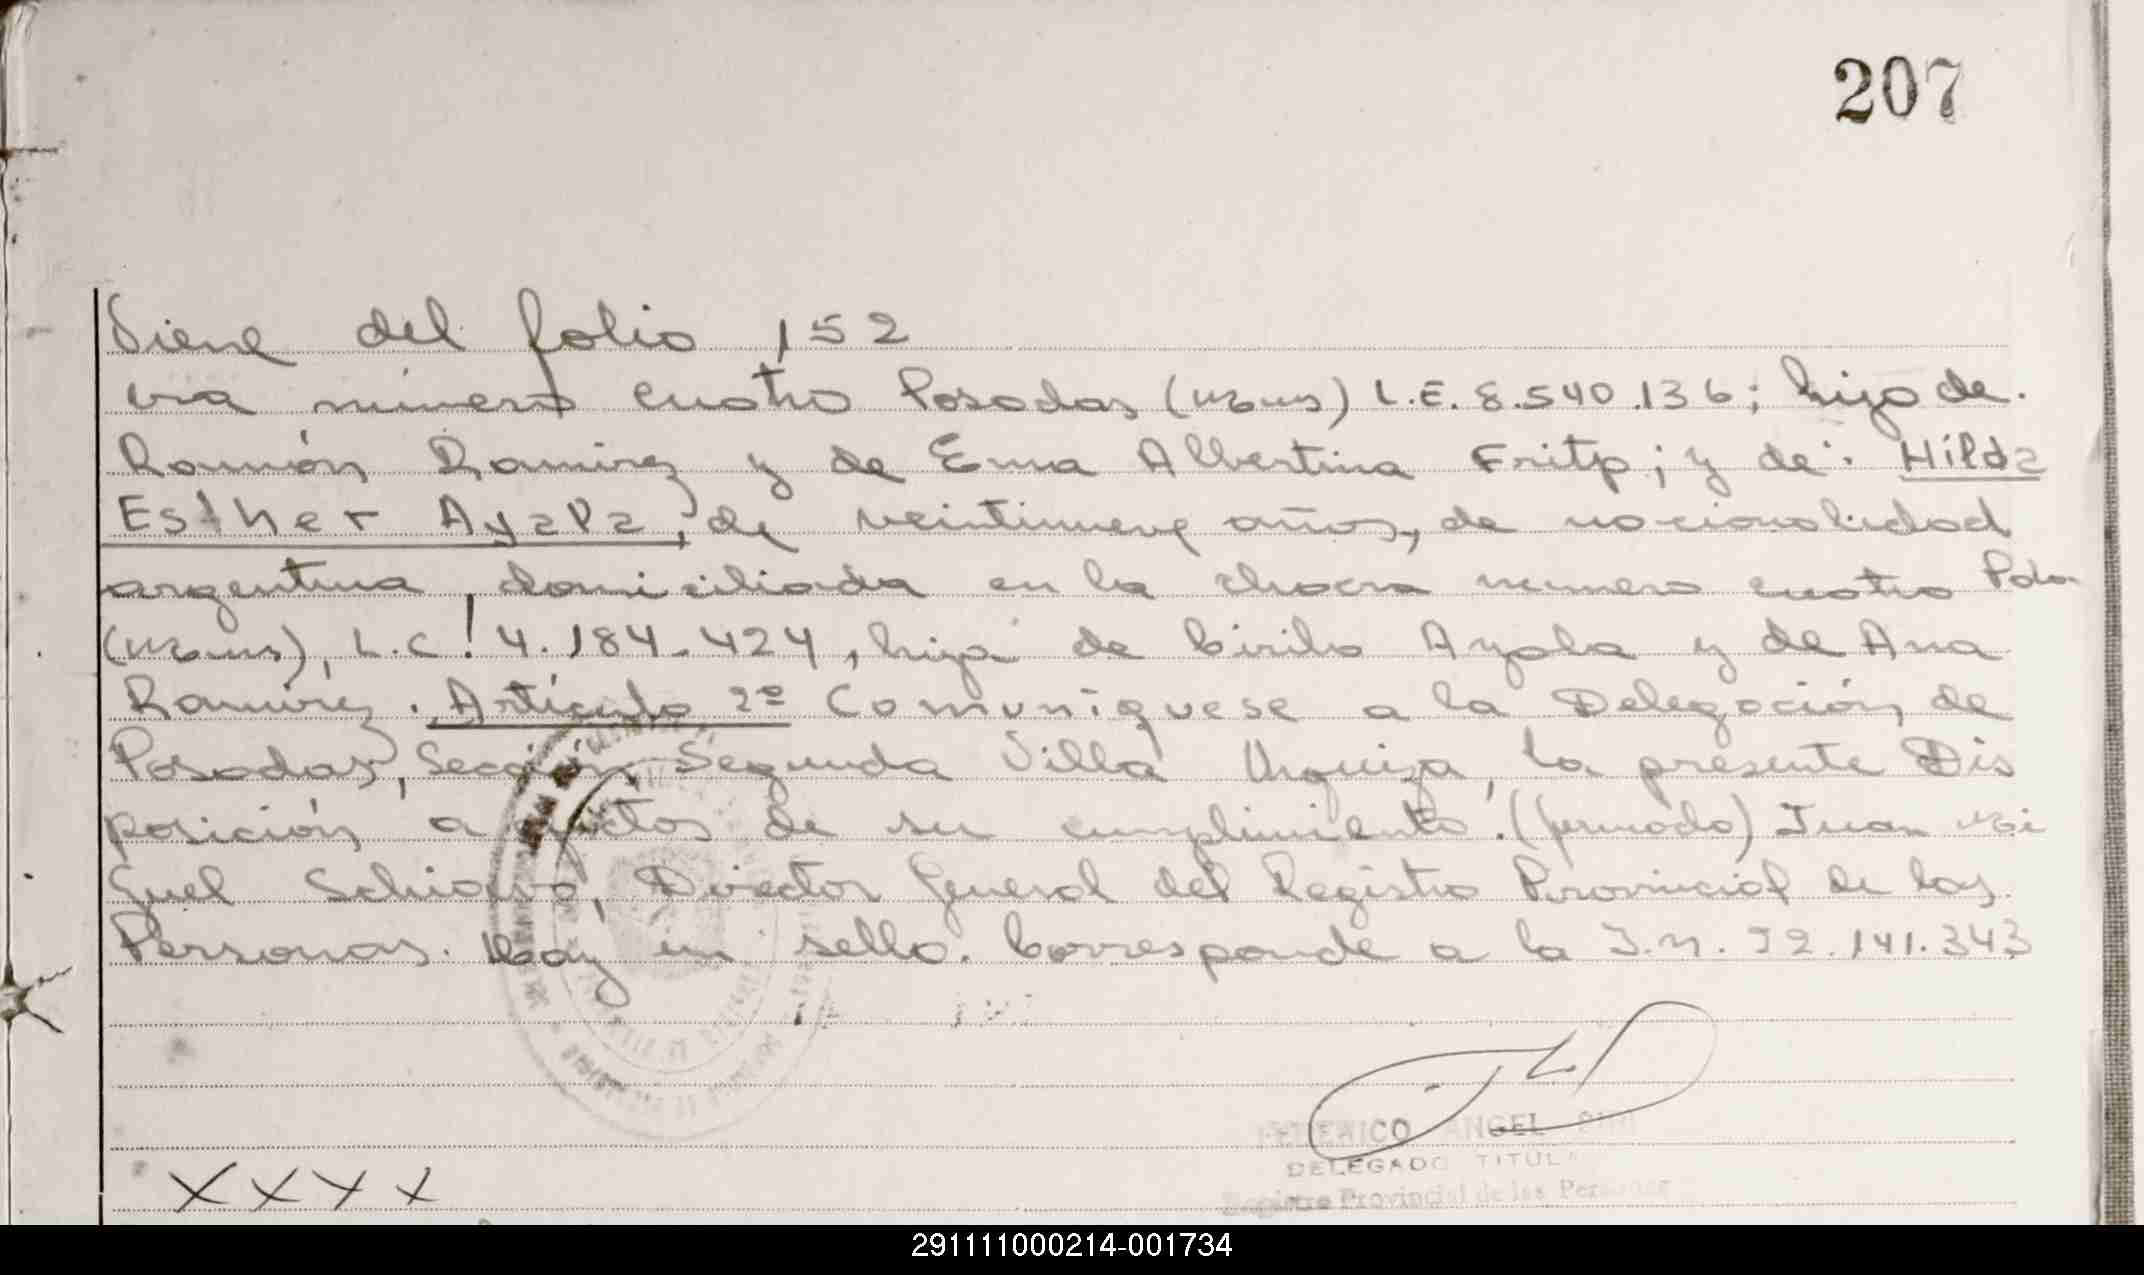 207
Viene del folio 152
cra número cuatro Posadas (Mnes) L.E. 8.540.136; hijo de.
Ramón Ramirez y de Ema Albertina Fritz; y de: Hilda
Esther Ayala, de veintinueve años, de nacionalidad
argentina, domiciliada en la chacra número cuatro Pdas
(Mnes), L.C. 4.184.424, hija de Cirilo Ayala y de Ana
Ramirez. Artículo 2º Comuníquese a la Delegación de
Posadas, Sección Segunda Villa Urquiza, la presente Dis
posición a efectos de su cumplimiento. (firmado) Juan Mi
guel Schiavo, Director General del Registro Provincial de las
Personas. Hay un sello. Corresponde a la I.N. 92.141.343
FEDERICO ANGEL
DELEGADO TITULAR
Registro Provincial de las Personas
XXXX
291111000214-001734